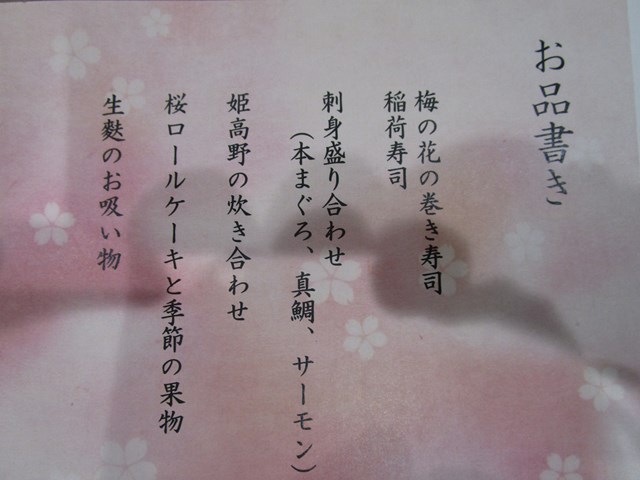 お品書き
梅の花の巻き寿司
稲荷寿司
刺身盛り合わせ
（本まぐろ、真鯛、サーモン）
姫高野の炊き合わせ
桜ロールケーキと季節の果物
生麩のお吸い物